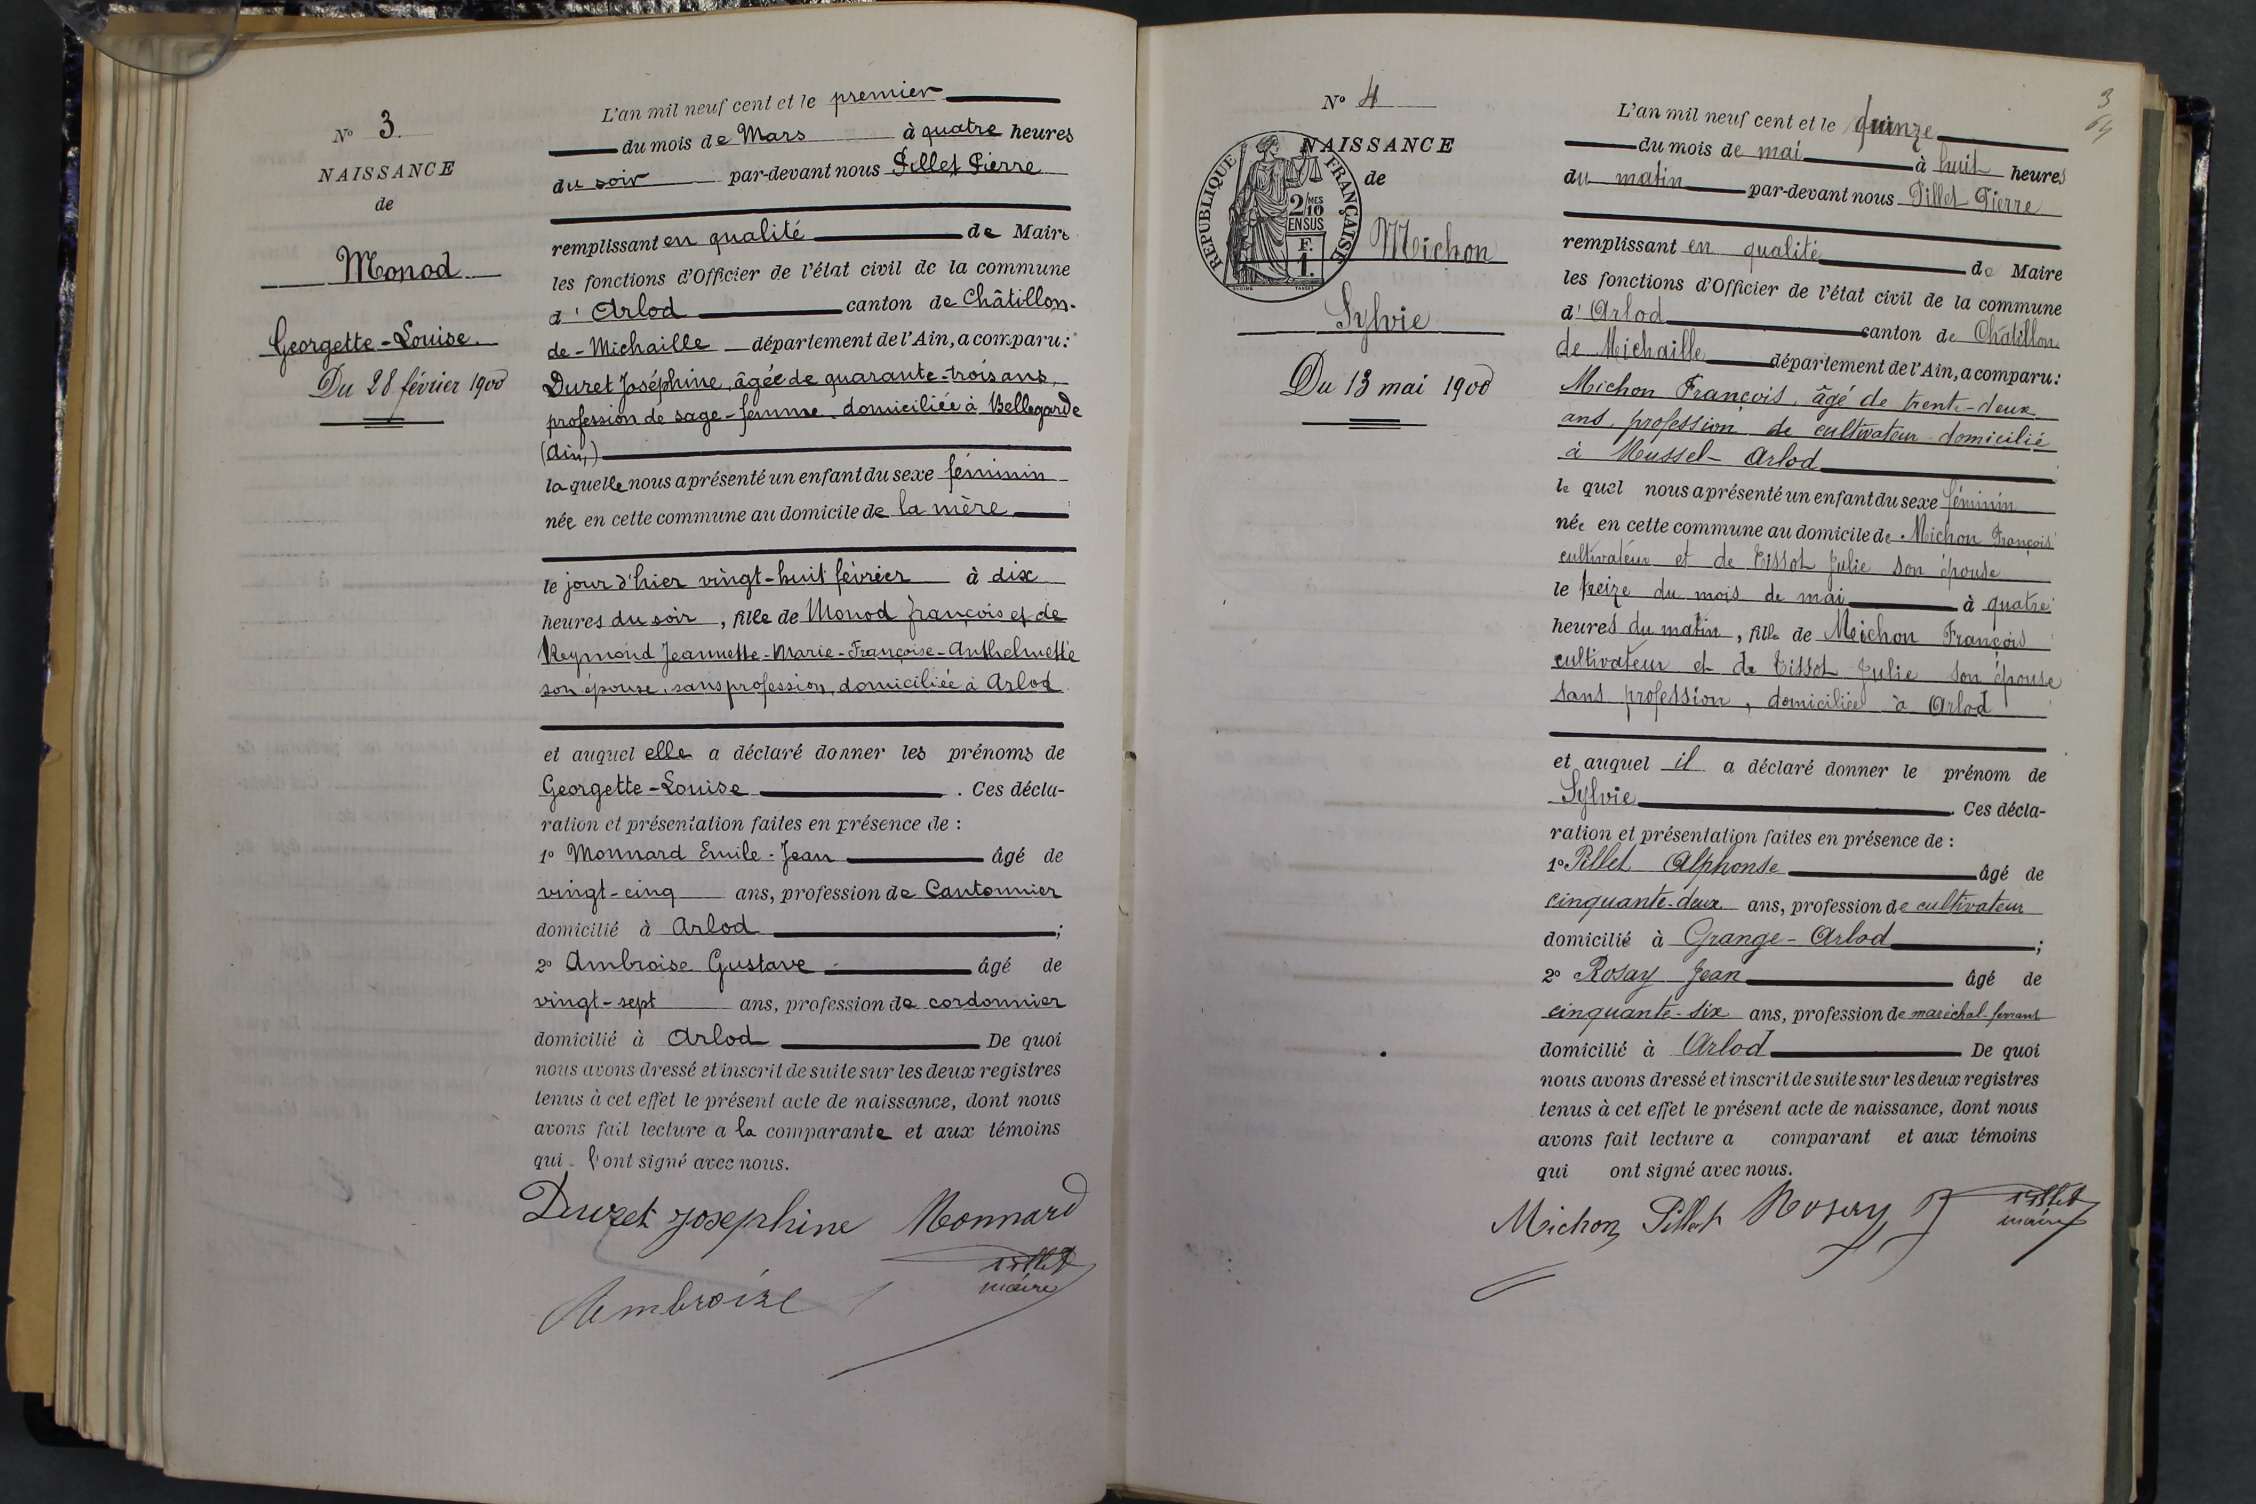 N° 3
NAISSANCE
de
Monod
Georgette-Louise
Du 28 février 1900
L'an mil neuf cent et le premier
du mois de Mars à quatre heures
du soir par-devant nous Pillet Pierre
remplissant en qualité de Maire
les fonctions d'Officier de l'état civil de la commune
d'Arlod canton de Châtillon-
de-Michaille département de l'Ain, a comparu:
Duret Joséphine, âgée de quarante-trois ans,
profession de sage-femme domiciliée à Bellegarde
(Ain,)
laquelle nous a présenté un enfant du sexe féminin
née en cette commune au domicile de la mère
le jour d'hier vingt-huit février à dix
heures du soir, fille de Monod françois et de
Reymond Jeannette-Marie-Françoise-Anthelmette
son épouse, sans profession, domiciliée à Arlod
et auquel elle a déclaré donner les prénoms de
Georgette-Louise. Ces décla-
ration et présentation faites en présence de :
1° Monnard Emile-Jean âgé de
vingt-cinq ans, profession de Cantonnier
domicilié à Arlod ;
2° Ambroise Gustave âgé de
vingt-sept ans, profession de cordonnier
domicilié à Arlod De quoi
nous avons dressé et inscrit de suite sur les deux registres
tenus à cet effet le présent acte de naissance, dont nous
avons fait lecture a la comparante et aux témoins
qui l'ont signé avec nous.
Duret Josephine Monnard
Pillet
maire
Ambroise
3
N° 4
NAISSANCE
de
RÉPUBLIQUE FRANÇAISE
2/10 MES
EN SUS
F.
1.
Michon
Sylvie
Du 13 mai 1900
L'an mil neuf cent et le quinze
du mois de mai à huit heures
du matin par-devant nous Pillet Pierre
remplissant en qualité de Maire
les fonctions d'Officier de l'état civil de la commune
d'Arlod canton de Châtillon
de Michaille département de l'Ain, a comparu:
Michon François, âgé de trente-deux
ans, profession de cultivateur domicilié
à Mussel-Arlod
le quel nous a présenté un enfant du sexe féminin
née en cette commune au domicile de Michon François
cultivateur et de Tissot Julie son épouse
le treize du mois de mai à quatre
heures du matin, fille de Michon François
cultivateur et de Tissot Julie son épouse
sans profession, domiciliés à Arlod
et auquel il a déclaré donner le prénom de
Sylvie. Ces décla-
ration et présentation faites en présence de :
1° Pillet Alphonse âgé de
cinquante-deux ans, profession de cultivateur
domicilié à Grange-Arlod ;
2° Rosay Jean âgé de
cinquante-six ans, profession de maréchal-ferrant
domicilié à Arlod De quoi
nous avons dressé et inscrit de suite sur les deux registres
tenus à cet effet le présent acte de naissance, dont nous
avons fait lecture a comparant et aux témoins
qui ont signé avec nous.
Michon Pillet Rosay J Pillet
maire